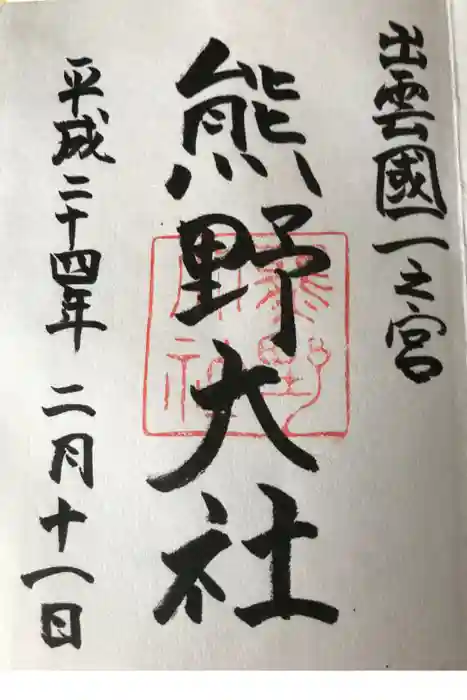 出雲國一之宮
熊野大社
平成二十四年 二月十一日